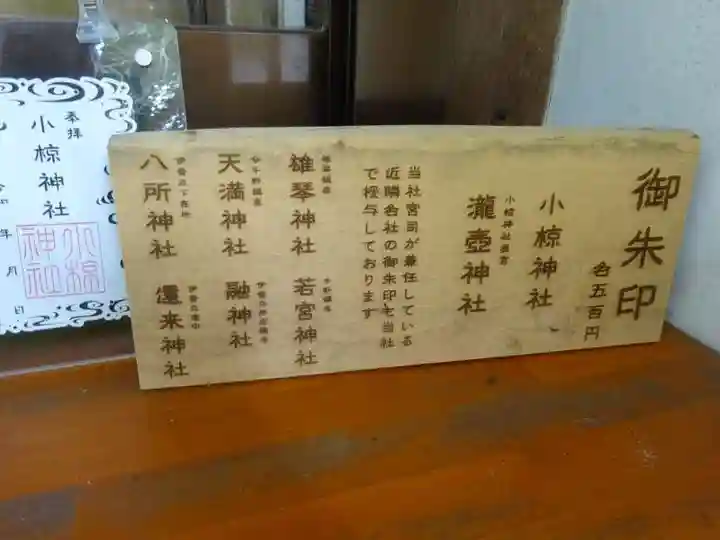 御朱印
各五百円
小椋神社
小椋神社奥宮
瀧壺神社
当社宮司が兼任している
近隣各社の御朱印も当社
で授与しております
雄琴神社
若宮神社
天満神社
融神社
八所神社
還来神社
奉拝
小椋神社
年 月 日
小椋
神社